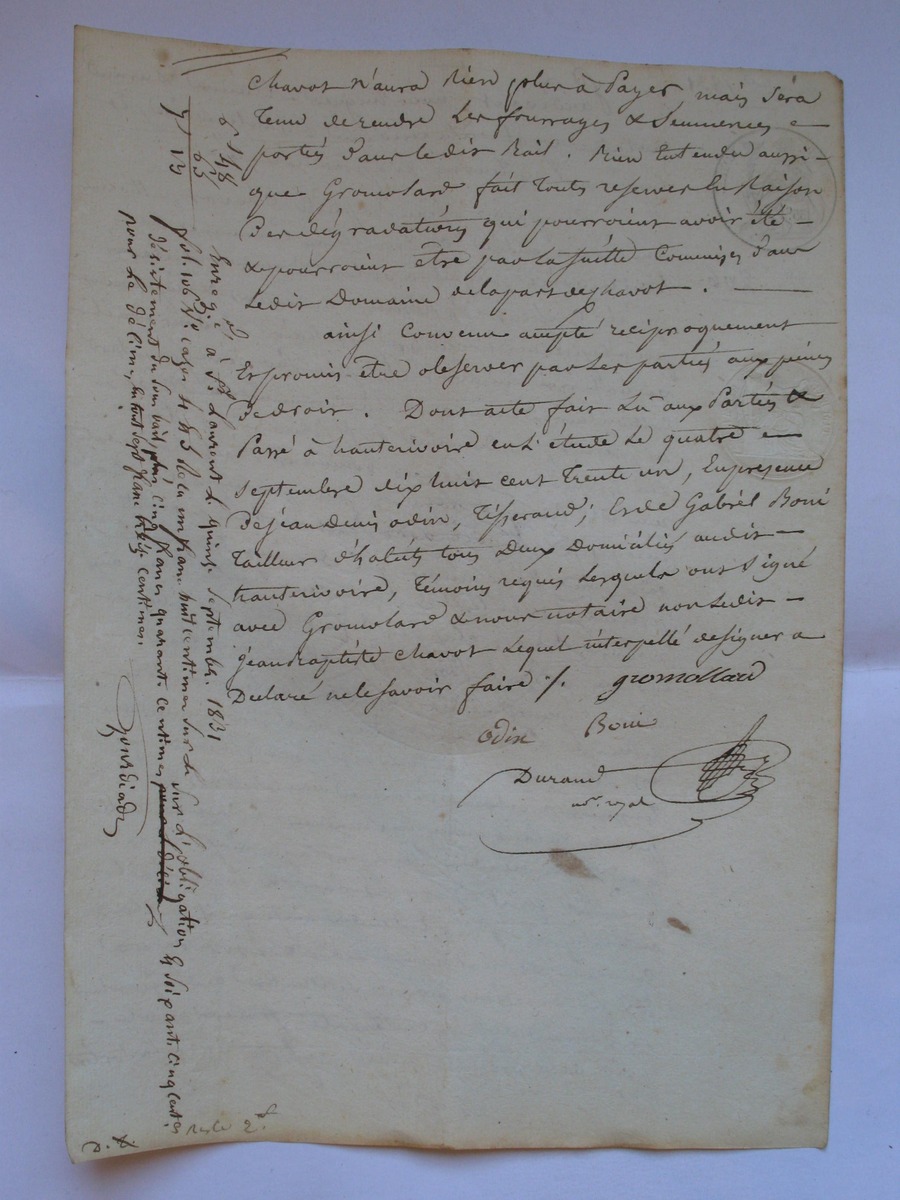 Chavot n'aura Rien plus à Payer mais séra
Tenu de rendre Les fourrages & Semences =
portés dans ledit Bail. Rien Entendu aussi-
que Gromolard fait touts reserves En Raison
Des dégradations qui pourroient avoir été -
& pourroient être par la suitte Commises dans
Ledit Domaine de la part de Chavot. —
ainsi Convenu accepté réciproquement
Et promis être observer par Les parties aux peines
De droit. Dont acte fait Lû aux Parties &
Passé à hauterivoire en L'étude Le quatre =
septembre dix huit cent Trente un, En présence
De jean Denis odin, Tisserand; Et de Gabriel Boni
Tailleur d'habits tous Deux Domiciliés audit -
hauterivoire, Témoins requis Lesquels ont Signé
avec Gromolard & nous notaire non Ledit -
jean Baptiste Chavot Lequel interpellé de signer a
Déclaré ne le savoir faire /. gromollard
odin Boni
Durand
nore. royal
6 48
65
7 13
Enregé. à St. Laurent le quinze septembre 1831
fol. 106 Vo. cases 4 & 5 Reçu un franc huit centimes sur le
sur L'obligation & soixante cinq centes.
désistement du sous bail, plus cinq francs quarante centimes
pour Le décime, en tout sept francs treize centimes.
reste 2 f.